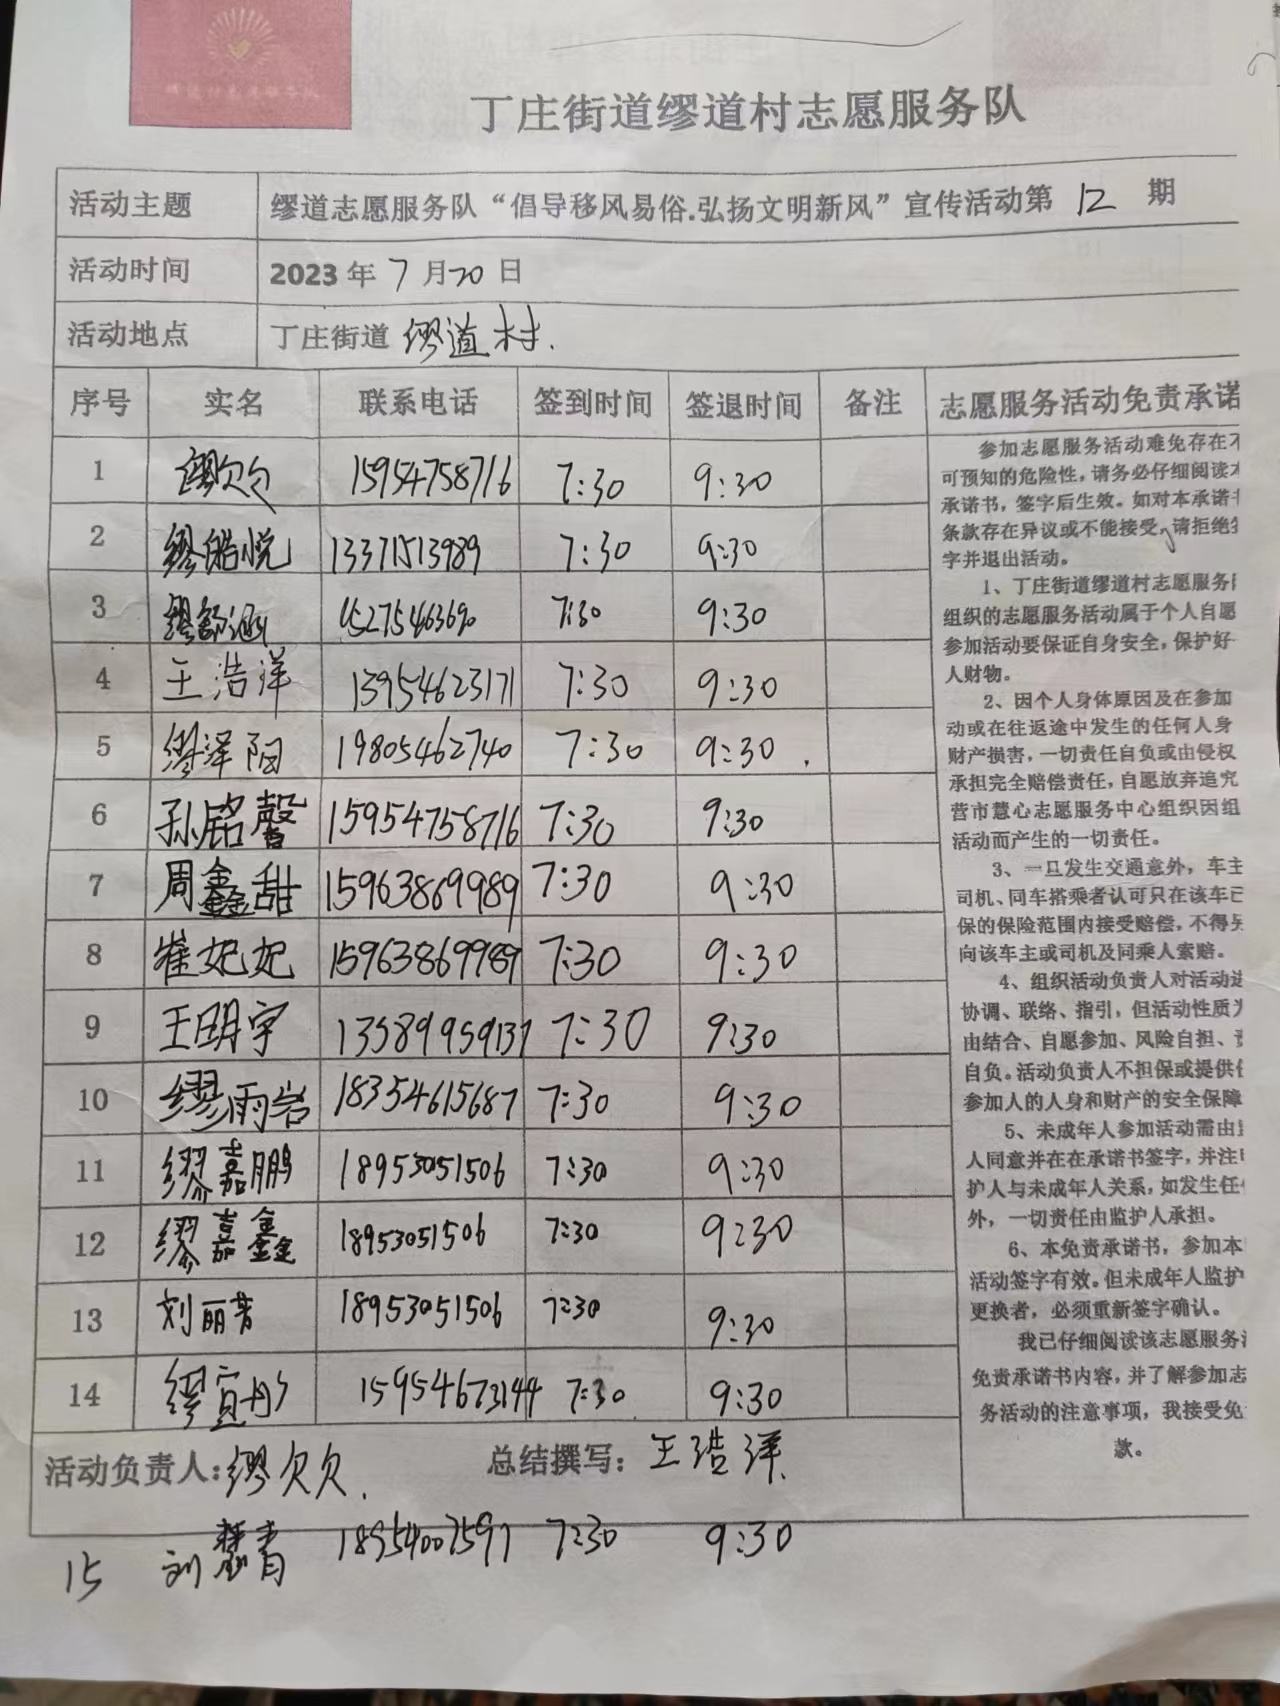 丁庄街道缪道村志愿服务队
活动主题 缪道志愿服务队“倡导移风易俗.弘扬文明新风”宣传活动第 12 期
活动时间 2023 年 7 月 20 日
活动地点 丁庄街道 缪道村.
序号 实名 联系电话 签到时间 签退时间 备注
1 缪欠欠 15954758716 7:30 9:30
2 缪皓悦 13371513989 7:30 9:30
3 缪 15275463690 7:30 9:30
4 王浩洋 13954623171 7:30 9:30
5 缪泽阳 19805462740 7:30 9:30
6 孙铭馨 15954758716 7:30 9:30
7 周鑫甜 15963869989 7:30 9:30
8 崔妃妃 15963869989 7:30 9:30
9 王明宇 13589959137 7:30 9:30
10 缪雨岩 18354615687 7:30 9:30
11 缪嘉鹏 18953051506 7:30 9:30
12 缪嘉鑫 18953051506 7:30 9:30
13 刘丽芳 18953051506 7:30 9:30
14 缪宜彤 15954673144 7:30 9:30
活动负责人:缪欠欠. 总结撰写: 王浩洋.
15 刘慧青 18954007597 7:30 9:30
志愿服务活动免责承诺
参加志愿服务活动难免存在不
可预知的危险性，请务必仔细阅读本
承诺书，签字后生效。如对本承诺书
条款存在异议或不能接受，请拒绝签
字并退出活动。
1、丁庄街道缪道村志愿服务队
组织的志愿服务活动属于个人自愿
参加活动要保证自身安全，保护好
人财物。
2、因个人身体原因及在参加
动或在往返途中发生的任何人身
财产损害，一切责任自负或由侵权
承担完全赔偿责任，自愿放弃追究
营市慧心志愿服务中心组织因组
活动而产生的一切责任。
3、一旦发生交通意外，车主
司机、同车搭乘者认可只在该车已
保的保险范围内接受赔偿，不得另
向该车主或司机及同乘人索赔。
4、组织活动负责人对活动进
协调、联络、指引，但活动性质为
由结合、自愿参加、风险自担、责
自负。活动负责人不担保或提供任
参加人的人身和财产的安全保障
5、未成年人参加活动需由监
人同意并在在承诺书签字，并注明
护人与未成年人关系，如发生任何
外，一切责任由监护人承担。
6、本免责承诺书，参加本
活动签字有效。但未成年人监护
更换者，必须重新签字确认。
我已仔细阅读该志愿服务活
免责承诺书内容，并了解参加志
务活动的注意事项，我接受免
款。